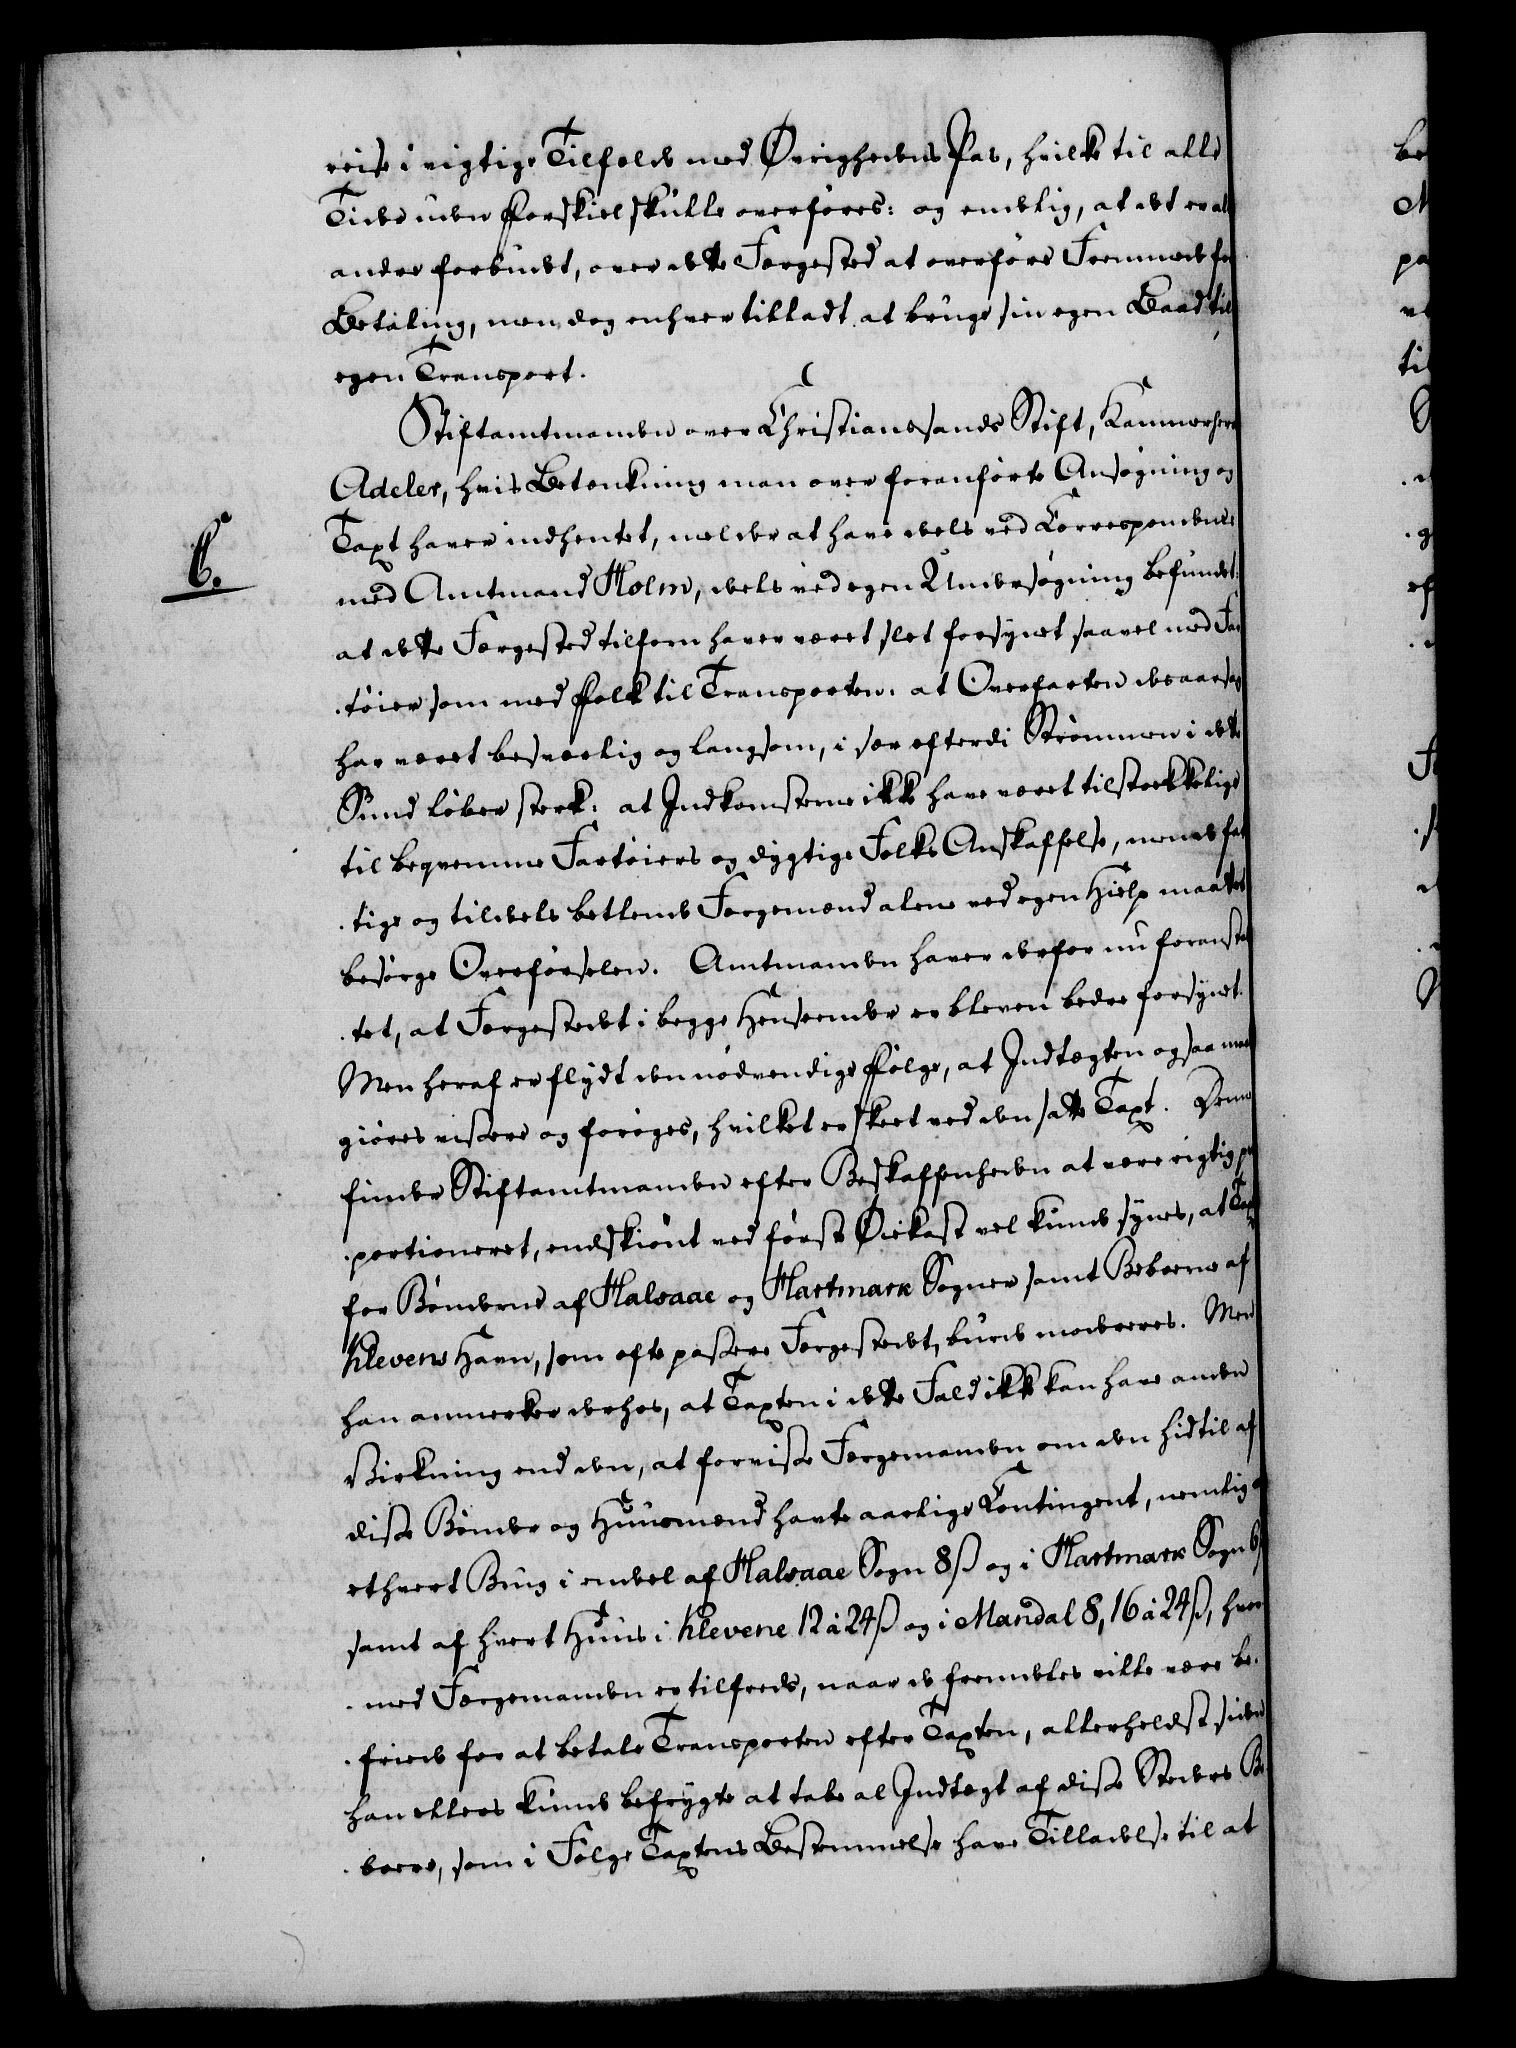 reise i vigtige Tilfælde med Øvrighedens Pas, hvilke til alle
Tider uden Forskiel skulle overføres: og endelig, at det er al
andre forbudt, over dette Færgested at overføre Fremmede for
Betaling, men dog enhver tilladt at bruge sin egen Baad til
egen Transport.
Stiftamtmanden over Christianssands Stift, Kammerherre
Adeler, hvis Betænkning man over foranførte Ansøgning og
Taxt haver indhentet, melder at have deels ved Correspondence
C.
med Amtmand Holm, deels ved egen Undersøgning befundet:
at dette Færgested tilforn haver været slet forsynet saavel med Far
tøier som med Folk til Transporten: at Overfarten desaarsag
har været besværlig og langsom, i sær efterdi Strømmen i dette
Sund løber sterk: at Indkomsterne ikke have været tilstrækkelige
til beqvemme Fartøiers og dygtige Folks Anskaffelse, mens fat
tige og tildeels betlende Færgemænd alene ved egen Hielp maattet
besørge Overførselen. Amtmanden haver derfor nu foranstal
tet, at Færgestedet i begge Henseender er bleven bedre forsynet.
Men heraf er flydt den nødvendige Følge, at Indtægten ogsaa maat
giøres vissere og forøges, hvilket er skeet ved den satte Taxt. Denne
finder Stiftamtmanden efter Beskaffenheden at være rigtig pro
portioneret, endskiønt ved første Øiekast vel kunde synes, at Taxt
for Bønderne af Halsaae og Hartmark Sogner samt Beboerne af
Klevens Havn, som ofte passere Færgestedet, burde modereres. Men
han anmerker derhos, at Taxten i dette Fald ikke kan have anden
Virkning end den, at forvisse Færgemanden om den hidtil af
disse Bønder og Huusmænd havte aarlige Contingent, nemlig af
ethvert Brug i endeel af Halsaae Sogn 8 ß og i Hartmark Sogn 6 ß
samt af hvert Huus i Klevene 12 à 24 ß og i Mandal 8, 16 à 24 ß, hvor
med Færgemanden er tilfreds, naar de fremdeles ville være be
friede for at betale Transporten efter Taxten, allerheldst siden
han ellers kunde befrygte at tabe al Indtægt af disse Steders Be
boere, som i Følge Taxtens Bestemmelse have Tilladelse til at